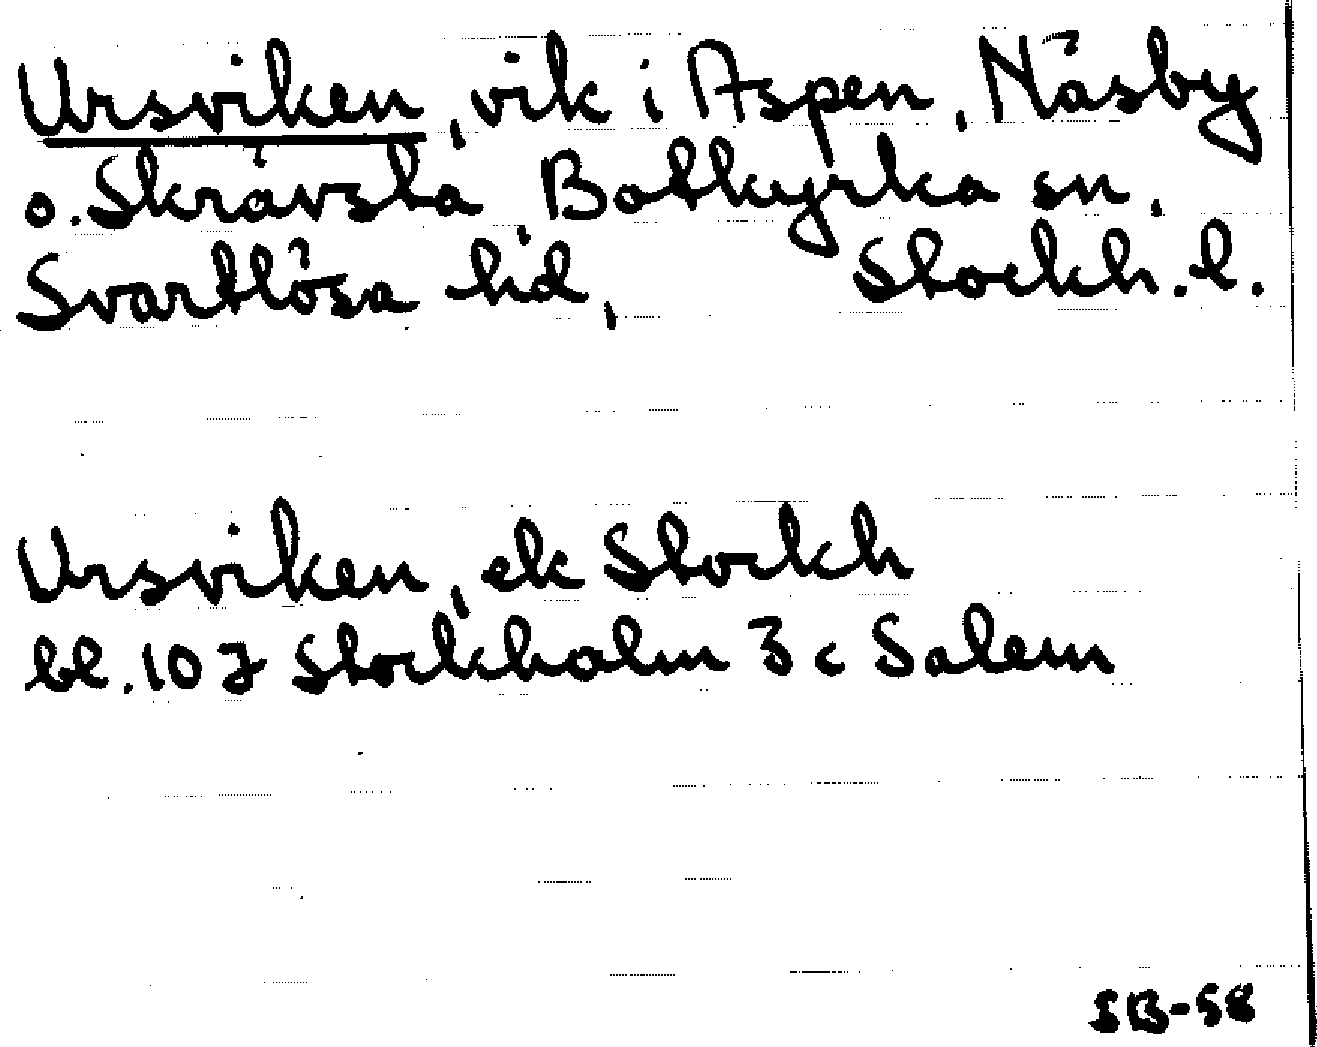 Ursviken, vik i Aspen, Näsby
o. Skrävsta, Botkyrka sn,
Svartlösa hd, Stockh. l.
Ursviken, ek Stockh
bl. 107 Stockholm 3 c Salem
SB-58